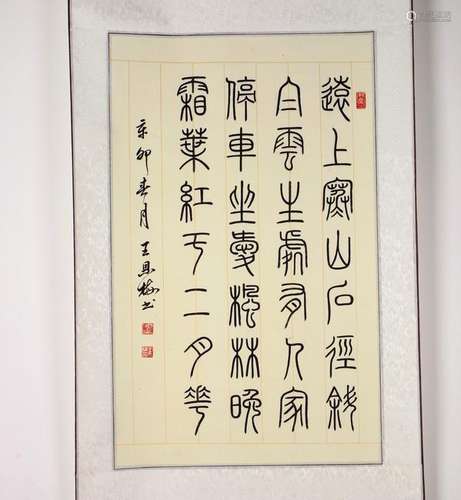 遠上寒山石徑斜
白雲生處有人家
停車坐愛楓林晚
霜葉紅于二月花
辛卯春月王恩書